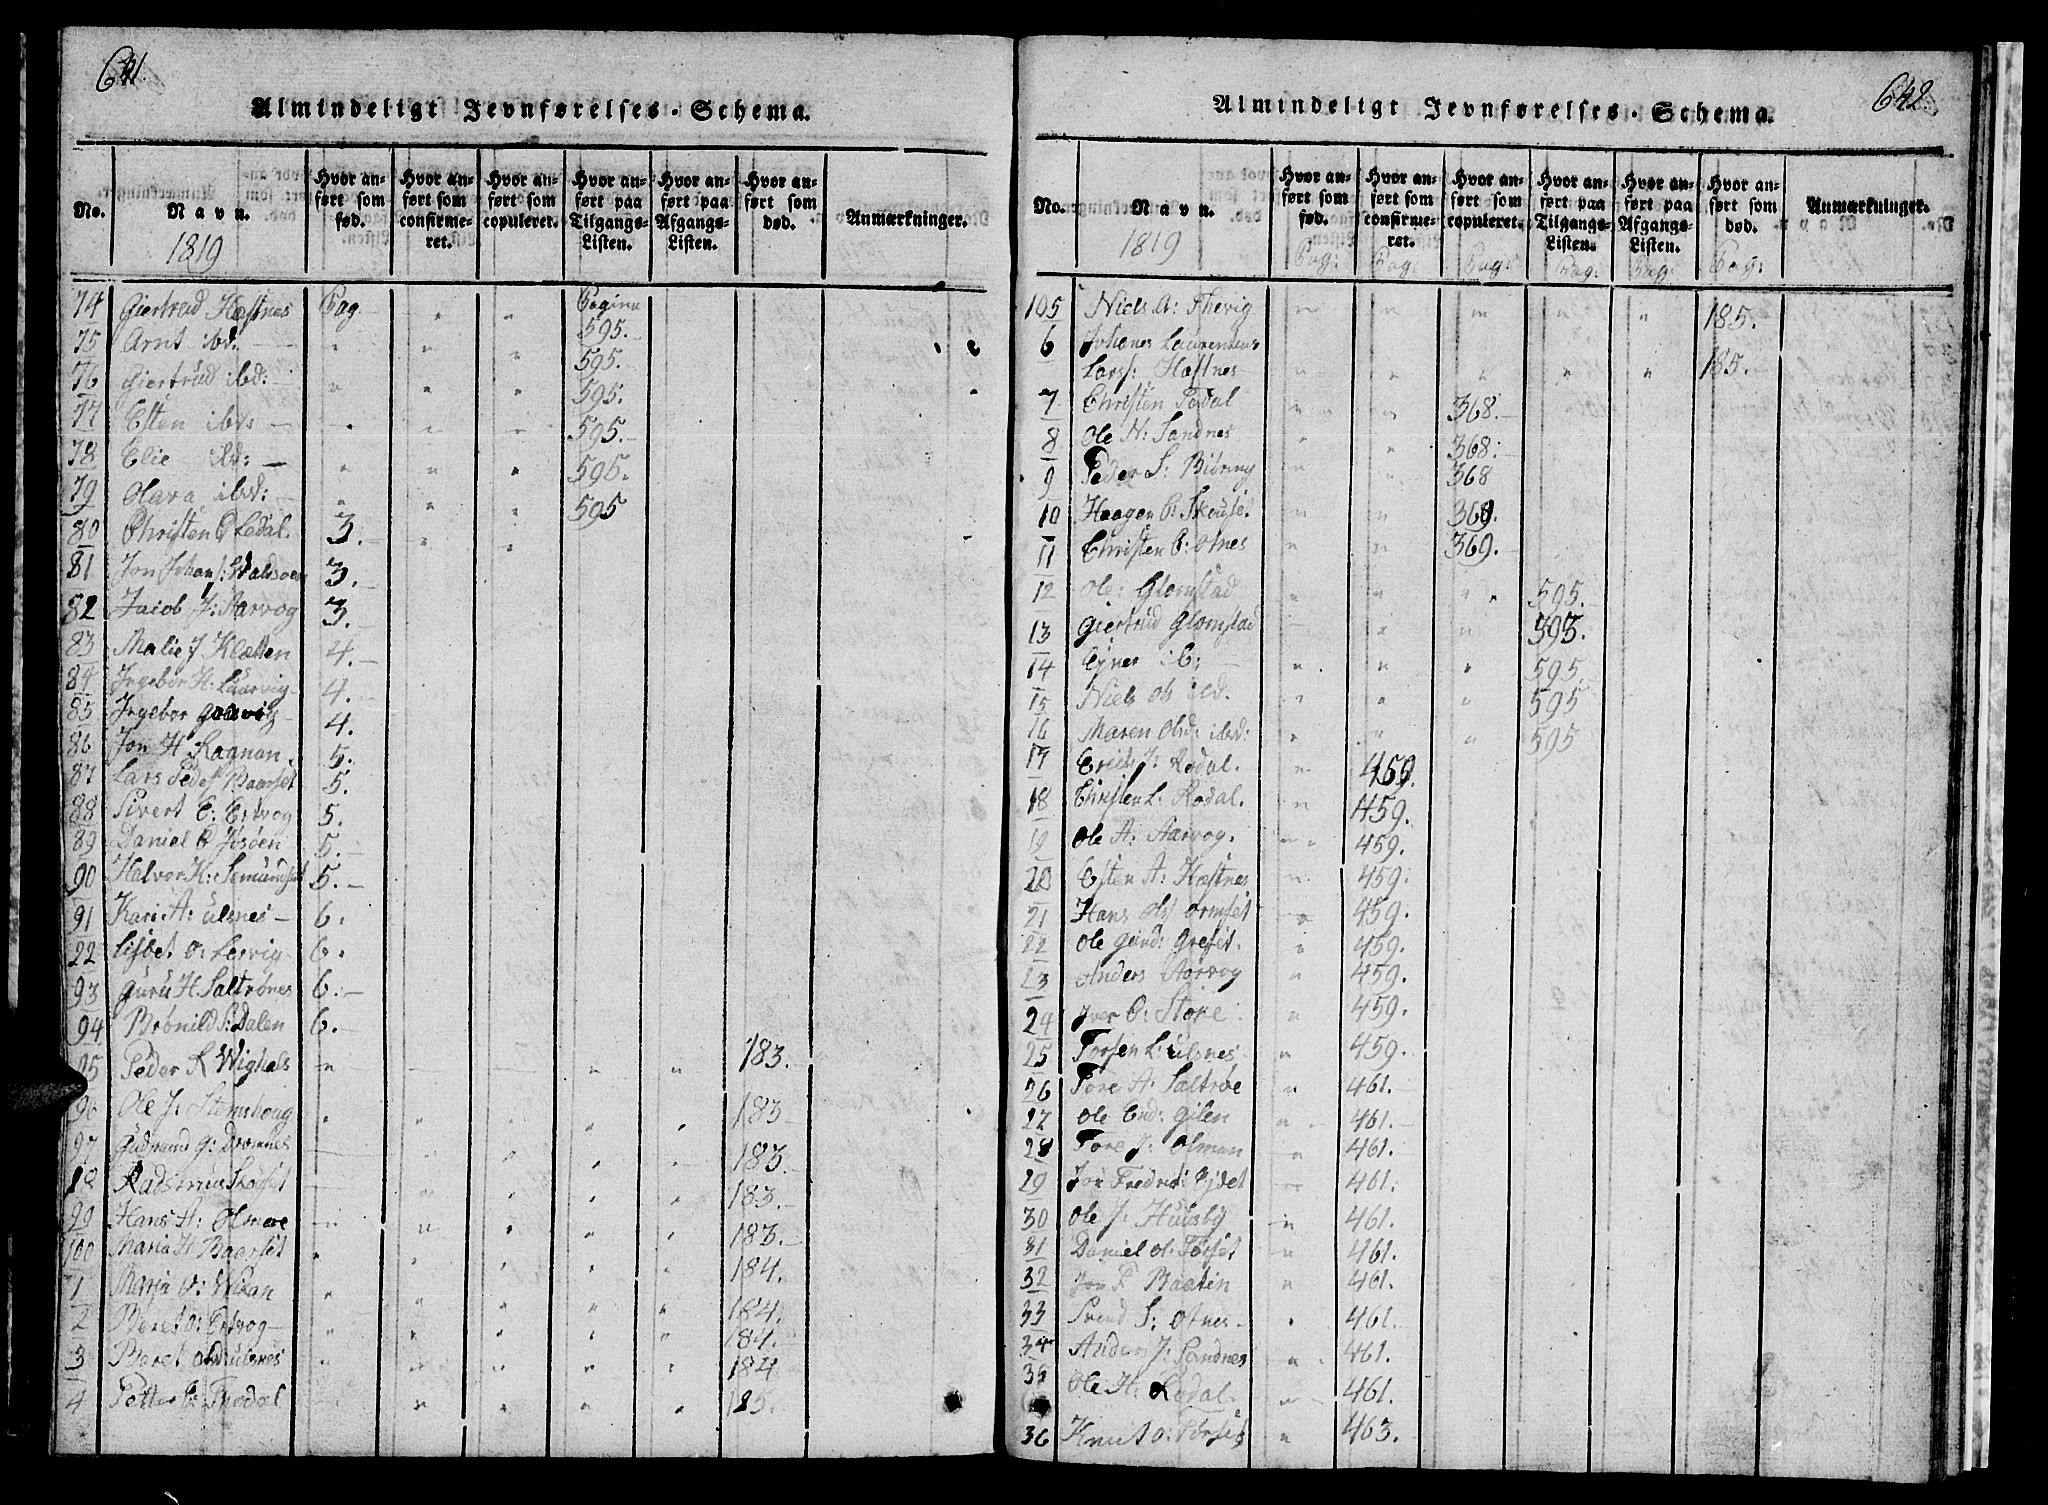 641.
Almindeligt Jevnførelses-Schema.
No.
Navn.
1819
Hvor anført som fød.
Hvor anført som confirmeret.
Hvor anført som copuleret.
Hvor anført paa Tilgangs-Listen.
Hvor anført paa Afgangs-Listen.
Hvor anført som død.
Anmærkninger.
74 Giertrud Hæstnes Pag " " Pagina 595.
75 Arnt ibd: " " " 595.
76 Giertrud ibd: " " " 595.
77 Esten ibd " " " 595.
78 Elie ibd: " " " 595.
79 Olava ibd: " " " 595
80 Christen Ledal. 3. " "
81 Jon Johans: 3.
82 Jacob J: Aarvog 3.
83 Malie J Kletten 4.
84 Ingebor H: Laurvig 4.
85 Ingebor 4.
86 Jon H Ragnan. 5.
87 Lars Peders Baarset 5.
88 Sivert E: Ertvog 5.
89 Daniel Josøen 5.
90 Halvor K: Semundset 5.
91 Kari A: Ulsnes 6.
22 Lisbet O: Lervig 6.
93 Guru H Saltrønes 6.
94 Brønild S: Dalen 6.
95 Peder K Wighals " " " 183.
96 Ole J: Stemshoug " " " " " 183
97 Gudmund G: Dromnes " " " " 183.
98 Radsmus Skorset " " " " 183.
99 Hans H: Olmoe " " " " " 183.
100 Maria H Baarset " " " " " 184.
1 Maria O: Wikan " " " " " 184.
2 Beret O: Ertvog " " " " " 184.
3 Beret Olsd: Ulsnes " " " " " 184
4 Petter C: Thodal " " " " 185.
642.
Almindeligt Jevnførelses-Schema.
No.
Navn.
1819
Hvor anført som fød.
Pag:
Hvor anført som confirmeret.
Pag:
Hvor anført som copuleret.
Pag:
Hvor anført paa Tilgangs-Listen.
Pag:
Hvor anført paa Afgangs-Listen.
Pag:
Hvor anført som død.
Pag:
Anmærkninger.
105 Niels A: Thervig " " " " " 185.
6 Johanes Laurentius
Lars: Hæstnes " " " " " 185.
7 Christen Rødal " " 368.
8 Ole N: Sandnes " " 368.
9 Peder S: Biøring " " 368
10 Haagen C: Skouset. " " 369.
11 Christen C: Otnes " " 369.
12 Ole: Glomstad " " " 595.
13 Giertrud Glomstad " " 595.
14 ib: " " " 595.
15 Niels Ols ibd. " " " 595
16 Maren Olsd: ibd: " " " 595
17 Erich J: Rodal. " 459.
18 Christen L: Rodal. " 459.
19 Ole A: Aarvog. " 459.
20 Esten A: Hæstnes " 459.
21 Hans Ols Ormset " 459.
22 Ole Gund: Greset. " 459.
23 Anders Aarvog " 459.
24 Iver O: Store " 459.
25 Torsen L: Ulsnes " 459.
26 Tore A: Saltrøe " 461.
27 Ole End: Gilen " 461.
28 Tore J: Olman " 461.
29 Jon Fredric: 461.
30 Ole J: Huusby " 461.
31 Daniel O: Torset " 461.
32 Jon P Baatin " 461.
33 Svend S: Otnes. " 461.
34 Anders J: Sandnes " 461.
35 Ole H: Rodal. " 461.
36 Knut O: Torset " 463.